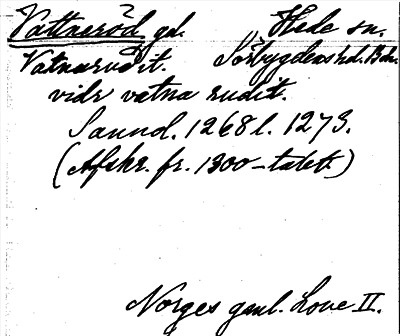 Vattneröd gd. Hede sn.
Vatnaruðit. Sörbygdens hd. Boh.
viðr vatna rudit.
Sannd. 1268 l. 1273.
(Afskr. fr. 1300-talet.)
Norges gaml. Love II.